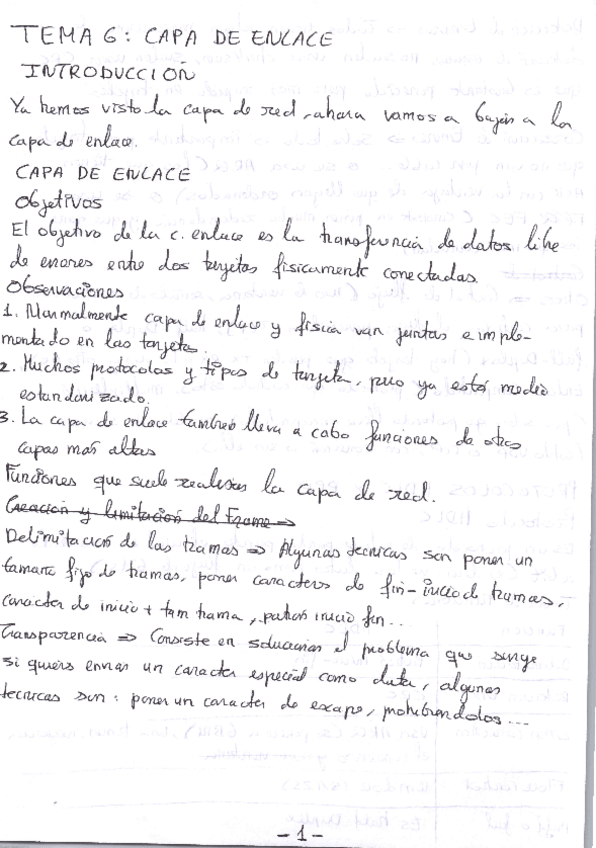 TEMA 6: CAPA DE ENLACE
INTRODUCCIÓN
Ya hemos visto la capa de red, ahora vamos a bajar a la
capa de enlace.
CAPA DE ENLACE
Objetivos
El objetivo de la c. enlace es la transferencia de datos libre
de errores entre dos tarjetas físicamente conectadas.
Observaciones
1. Normalmente capa de enlace y física van juntas e imple-
mentado en las tarjetas.
2. Muchos protocolos y tipos de tarjeta, pero ya está medio
estandarizado.
3. La capa de enlace también lleva a cabo funciones de otras
capas más altas
Funciones que suele realizar la capa de red.
Creación y limitación del Frame ⇒
Delimitación de las tramas ⇒ Algunas tecnicas son poner un
tamaño fijo de tramas, poner caracteres de fin-inicio de tramas,
caracter de inicio + tam trama, patrón inicio fin...
Transparencia ⇒ Consiste en solucionar el problema que surge
si quieres enviar un caracter especial como data, algunas
tecnicas son: poner un caracter de escape, prohibiendolos...
-1-